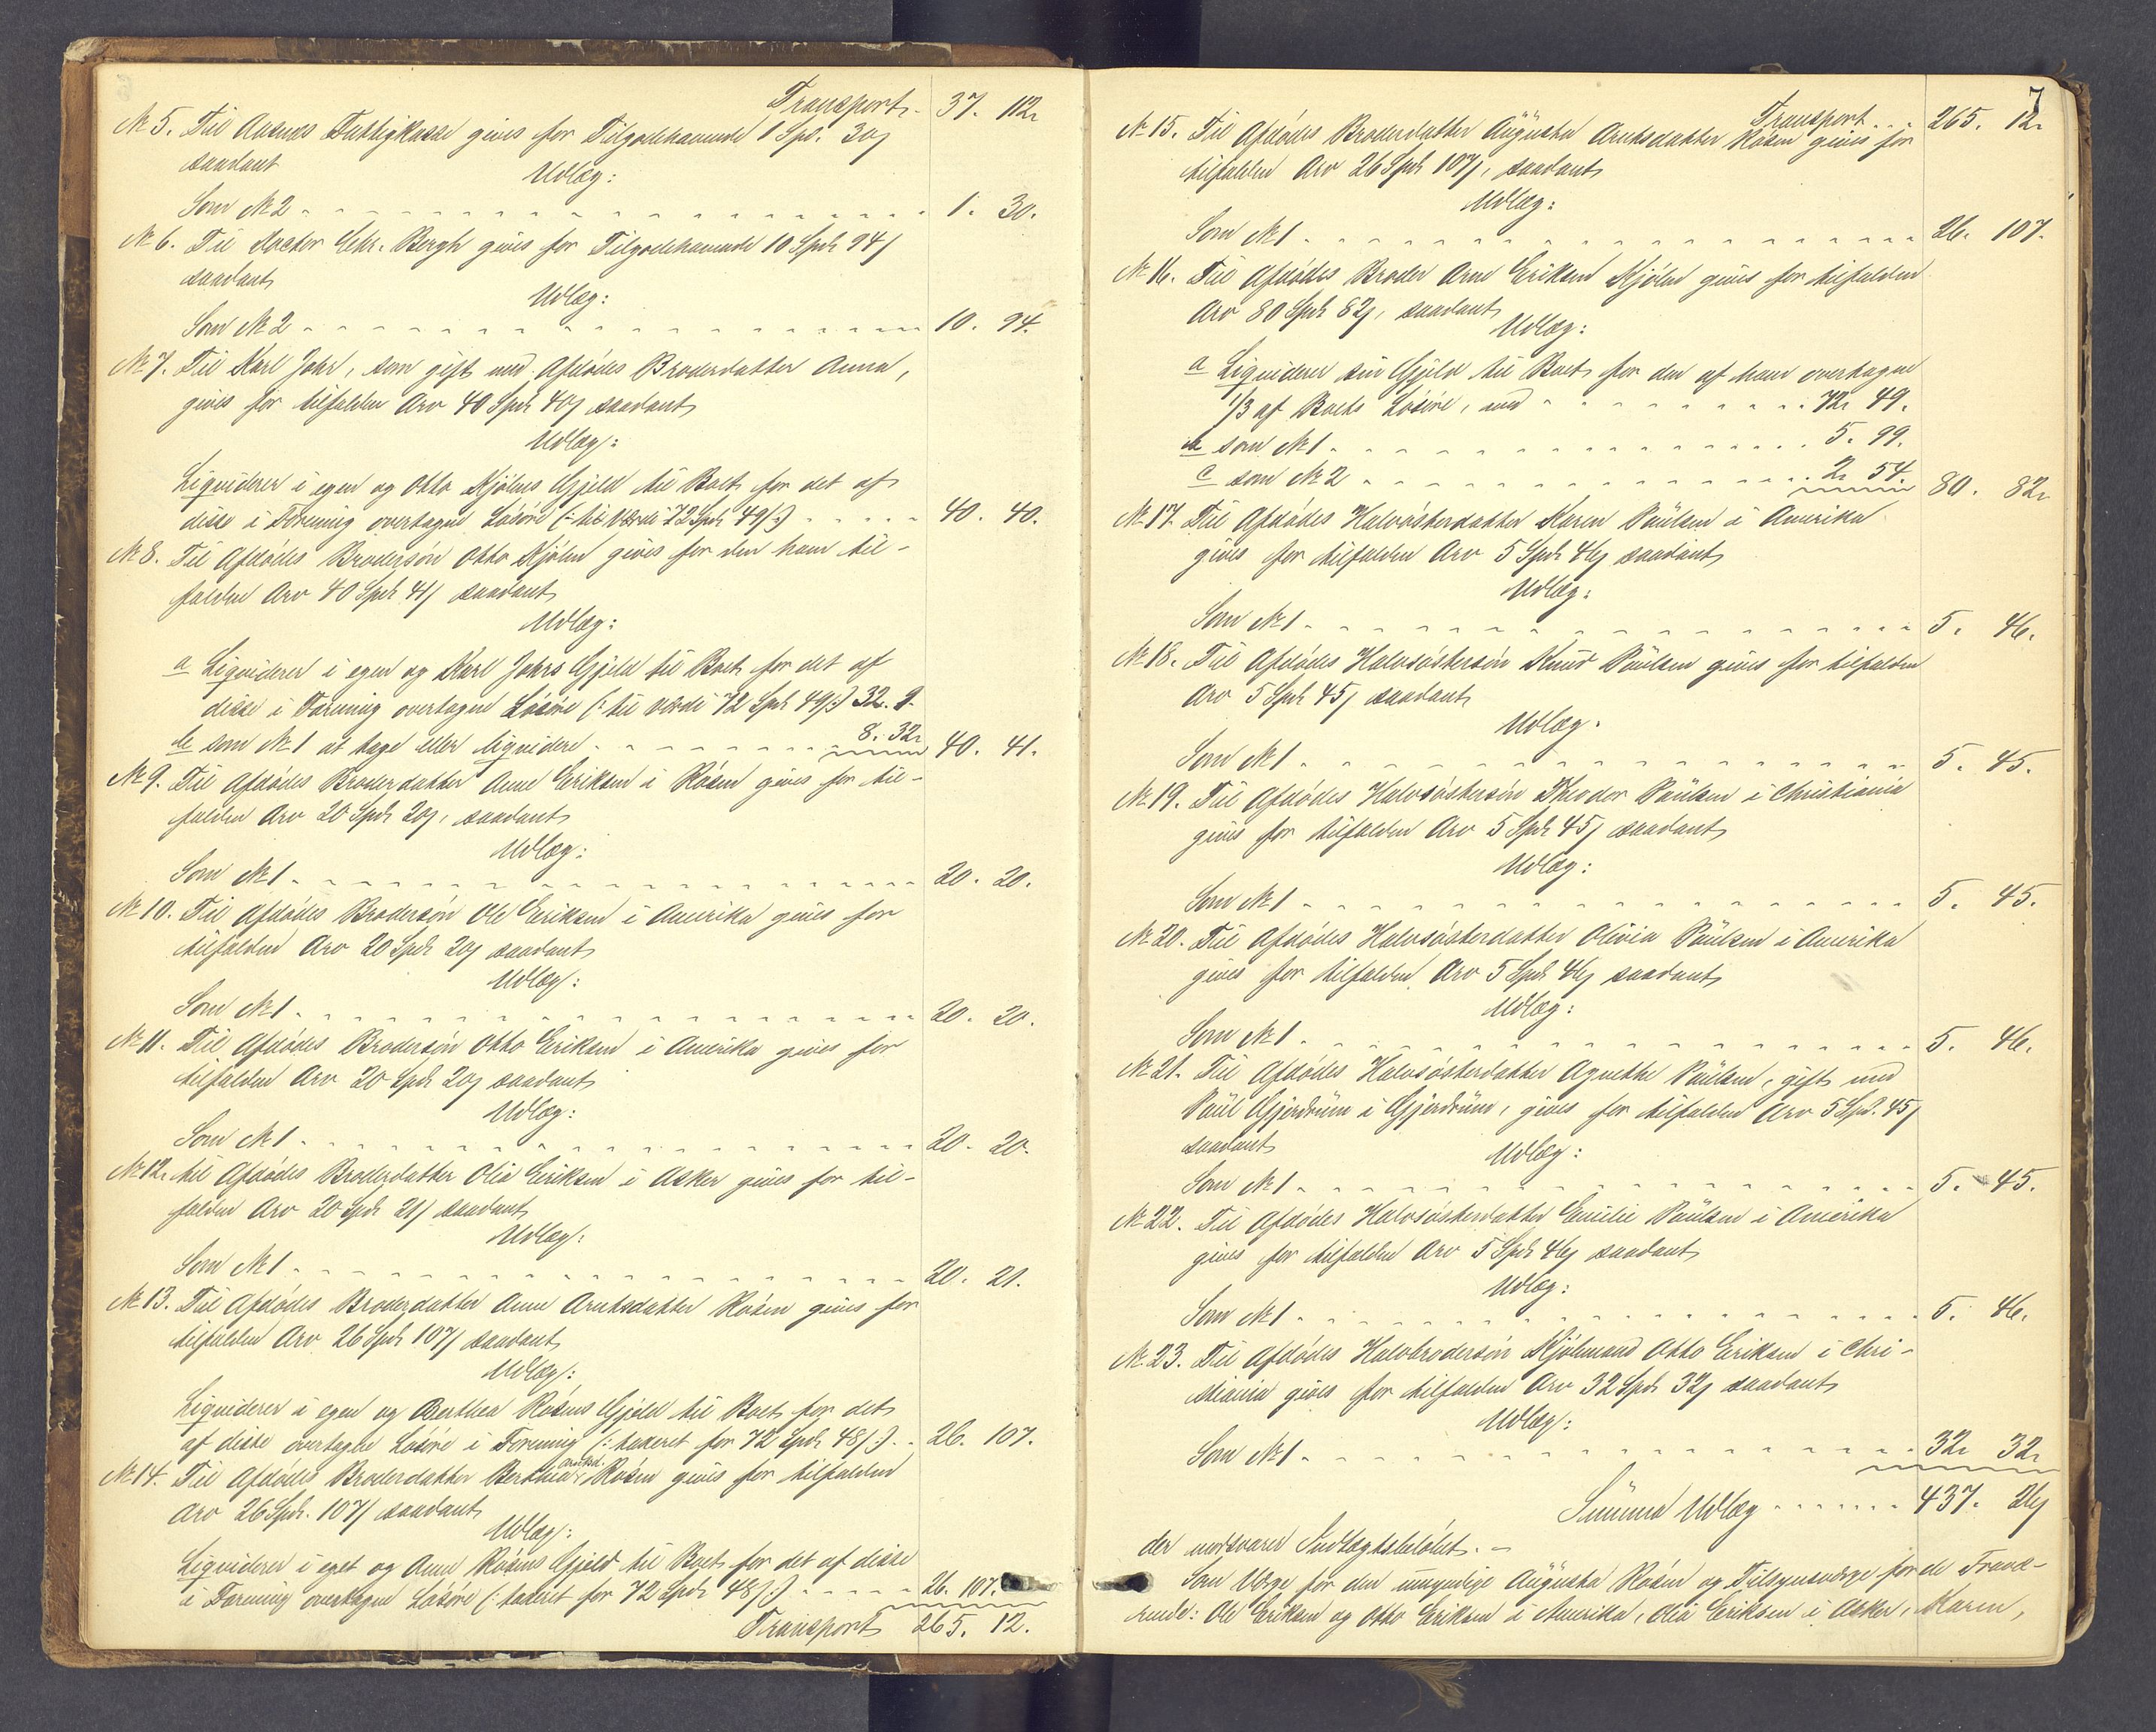 Transport - 37. 112.
№ 5. Til Aasnes Fattigkasse gives for Tilgodehavende 1 Spd. 30 ß
saadant
Udlæg:
Som № 2 - - - 1. 30.
№ 6. Til Doctor Chr. Bergh gives for Tilgodehavende 10 Spd. 94 ß
saadant
Udlæg:
Som № 2 - - - 10. 94.
№ 7. Til Karl Johr, som gift med Afdødes Broderdatter Anna,
gives for tilfalden Arv 40 Spd. 40 ß saadant
Udlæg:
Liquiderer i egen og Otto Kjølens Gjæld til Boet for det af
disse i Forening overtagne Løsøre (: til Værdi 72 Spd. 49 ß :) - - - 40. 40.
№ 8. Til Afdødes Brodersøn Otto Kjølen gives for den ham til-
falden Arv 40 Spd. 41 ß saadant
Udlæg:
a Liquiderer i egen og Karl Johrs Gjæld til Boet for det af
disse i Forening overtagne Løsøre (: til værdi 72 Spd. 49 ß :) 32. 9.
b som № 1 at tage eller liquidere - - - 8. 32. 40. 41.
№ 9. Til Afdødes Broderdatter Anne Eriksen i Råsen gives for til-
falden Arv 20 Spd. 20 ß, saadant
Udlæg:
Som № 1 - - - 20. 20.
№ 10. Til Afdødes Brodersøn Ole Eriksen i Amerika gives for
tilfalden Arv 20 Spd. 20 ß saadant
Udlæg:
Som № 1 - - - 20. 20.
№ 11. Til Afdødes Brodersøn Otto Eriksen i Amerika gives for
tilfalden Arv 20 Spd. 20 ß saadant
Udlæg:
Som № 1 - - - 20. 20.
№ 12. til Afdødes Broderdatter Olia Eriksen i Asker gives for til-
falden Arv 20 Spd. 21 ß saadant
Udlæg:
Som № 1 - - - 20. 21.
№ 13. Til Afdødes Broderdatter Anne Arntsdatter Råsen gives for
tilfalden Arv 26 Spd. 107 ß saadant
Udlæg:
Liquiderer i egen og Berthea Råsens Gjæld til Boet for det
af disse overtagne Løsøre i Forening (: taxeret for 72 Spd. 48 ß :) - - 26. 107.
№ 14. Til Afdødes Broderdatter Berthea Arntsd. Råsen gives for tilfalden
Arv 26 Spd. 107 ß saadant
Udlæg:
Liquiderer i eget og Anne Råsens Gjæld til Boet for det af disse
i Forening overtagne Løsøre (: taxeret for 72 Spd. 48 ß :) - - - 26. 107.
Transport 265. 12.
7
Transport - - - 265. 12.
№ 15. Til Afdødes Broderdatter Augusta Arntsdatter Råsen gives for
tilfalden Arv 26 Spd. 107 ß, saadant
Udlæg:
Som № 1 - - - 26. 107.
№ 16. Til Afdødes Broder Arne Eriksen Kjølen gives for tilfalden
Arv 80 Spd. 82 ß, saadant
Udlæg:
a Liquiderer sin Gjæld til Boet for den af ham overtagne
1/3 af Boets Løsøre, med - - - 72. 49.
b som № 1 - - - 5. 99.
c som № 2 - - - 2. 54. 80. 82.
№ 17. Til Afdødes Halvsøsterdatter Karen Paulsen i Amerika
gives for tilfalden Arv 5 Spd. 46 ß saadant
Udlæg:
Som № 1 - - - 5. 46.
№ 18. Til Afdødes Halvsøstersøn Knud Paulsen gives for tilfalden
Arv 5 Spd. 45 ß saadant
Udlæg.
Som № 1 - - - 5. 45.
№ 19. Til Afdødes Halvsøstersøn Theodor Paulsen i Christiania
gives for tilfalden Arv 5 Spd. 45 ß saadant
Udlæg:
Som № 1 - - - 5. 45.
№ 20. Til Afdødes Halvsøsterdatter Olivia Paulsen i Amerika
gives for tilfalden Arv 5 Spd. 46 ß saadant
Udlæg:
Som № 1 - - - 5. 46.
№ 21. Til Afdødes Halvsøsterdatter Agnethe Paulsen, gift med
Paul Gjerdrum i Gjerdrum, gives for tilfalden Arv 5 Spd. 45 ß
saadant
Udlæg:
Som № 1 - - - 5. 45.
№ 22. Til Afdødes Halvsøsterdatter Emilie Paulsen i Amerika
gives for tilfalden Arv 5 Spd. 46 ß saadant
Udlæg:
Som № 1 - - - 5. 46.
№ 23. Til Afdødes Halvbrodersøn Kjøbmand Otto Eriksen i Chri-
stiania gives for tilfalden Arv 32 Spd. 32 ß saadant
Udlæg:
Som № 1 - - - 32. 32.
Summa Udlæg - - - 437. 26 ß
der modsvarer Indtægtsbeløbet. -
Som Værge for den umyndige Augusta Råsen og Tilsynsværge for de Fravæ-
rende: Ole Eriksen og Otto Eriksen i Amerika, Olia Eriksen i Asker, Karen,